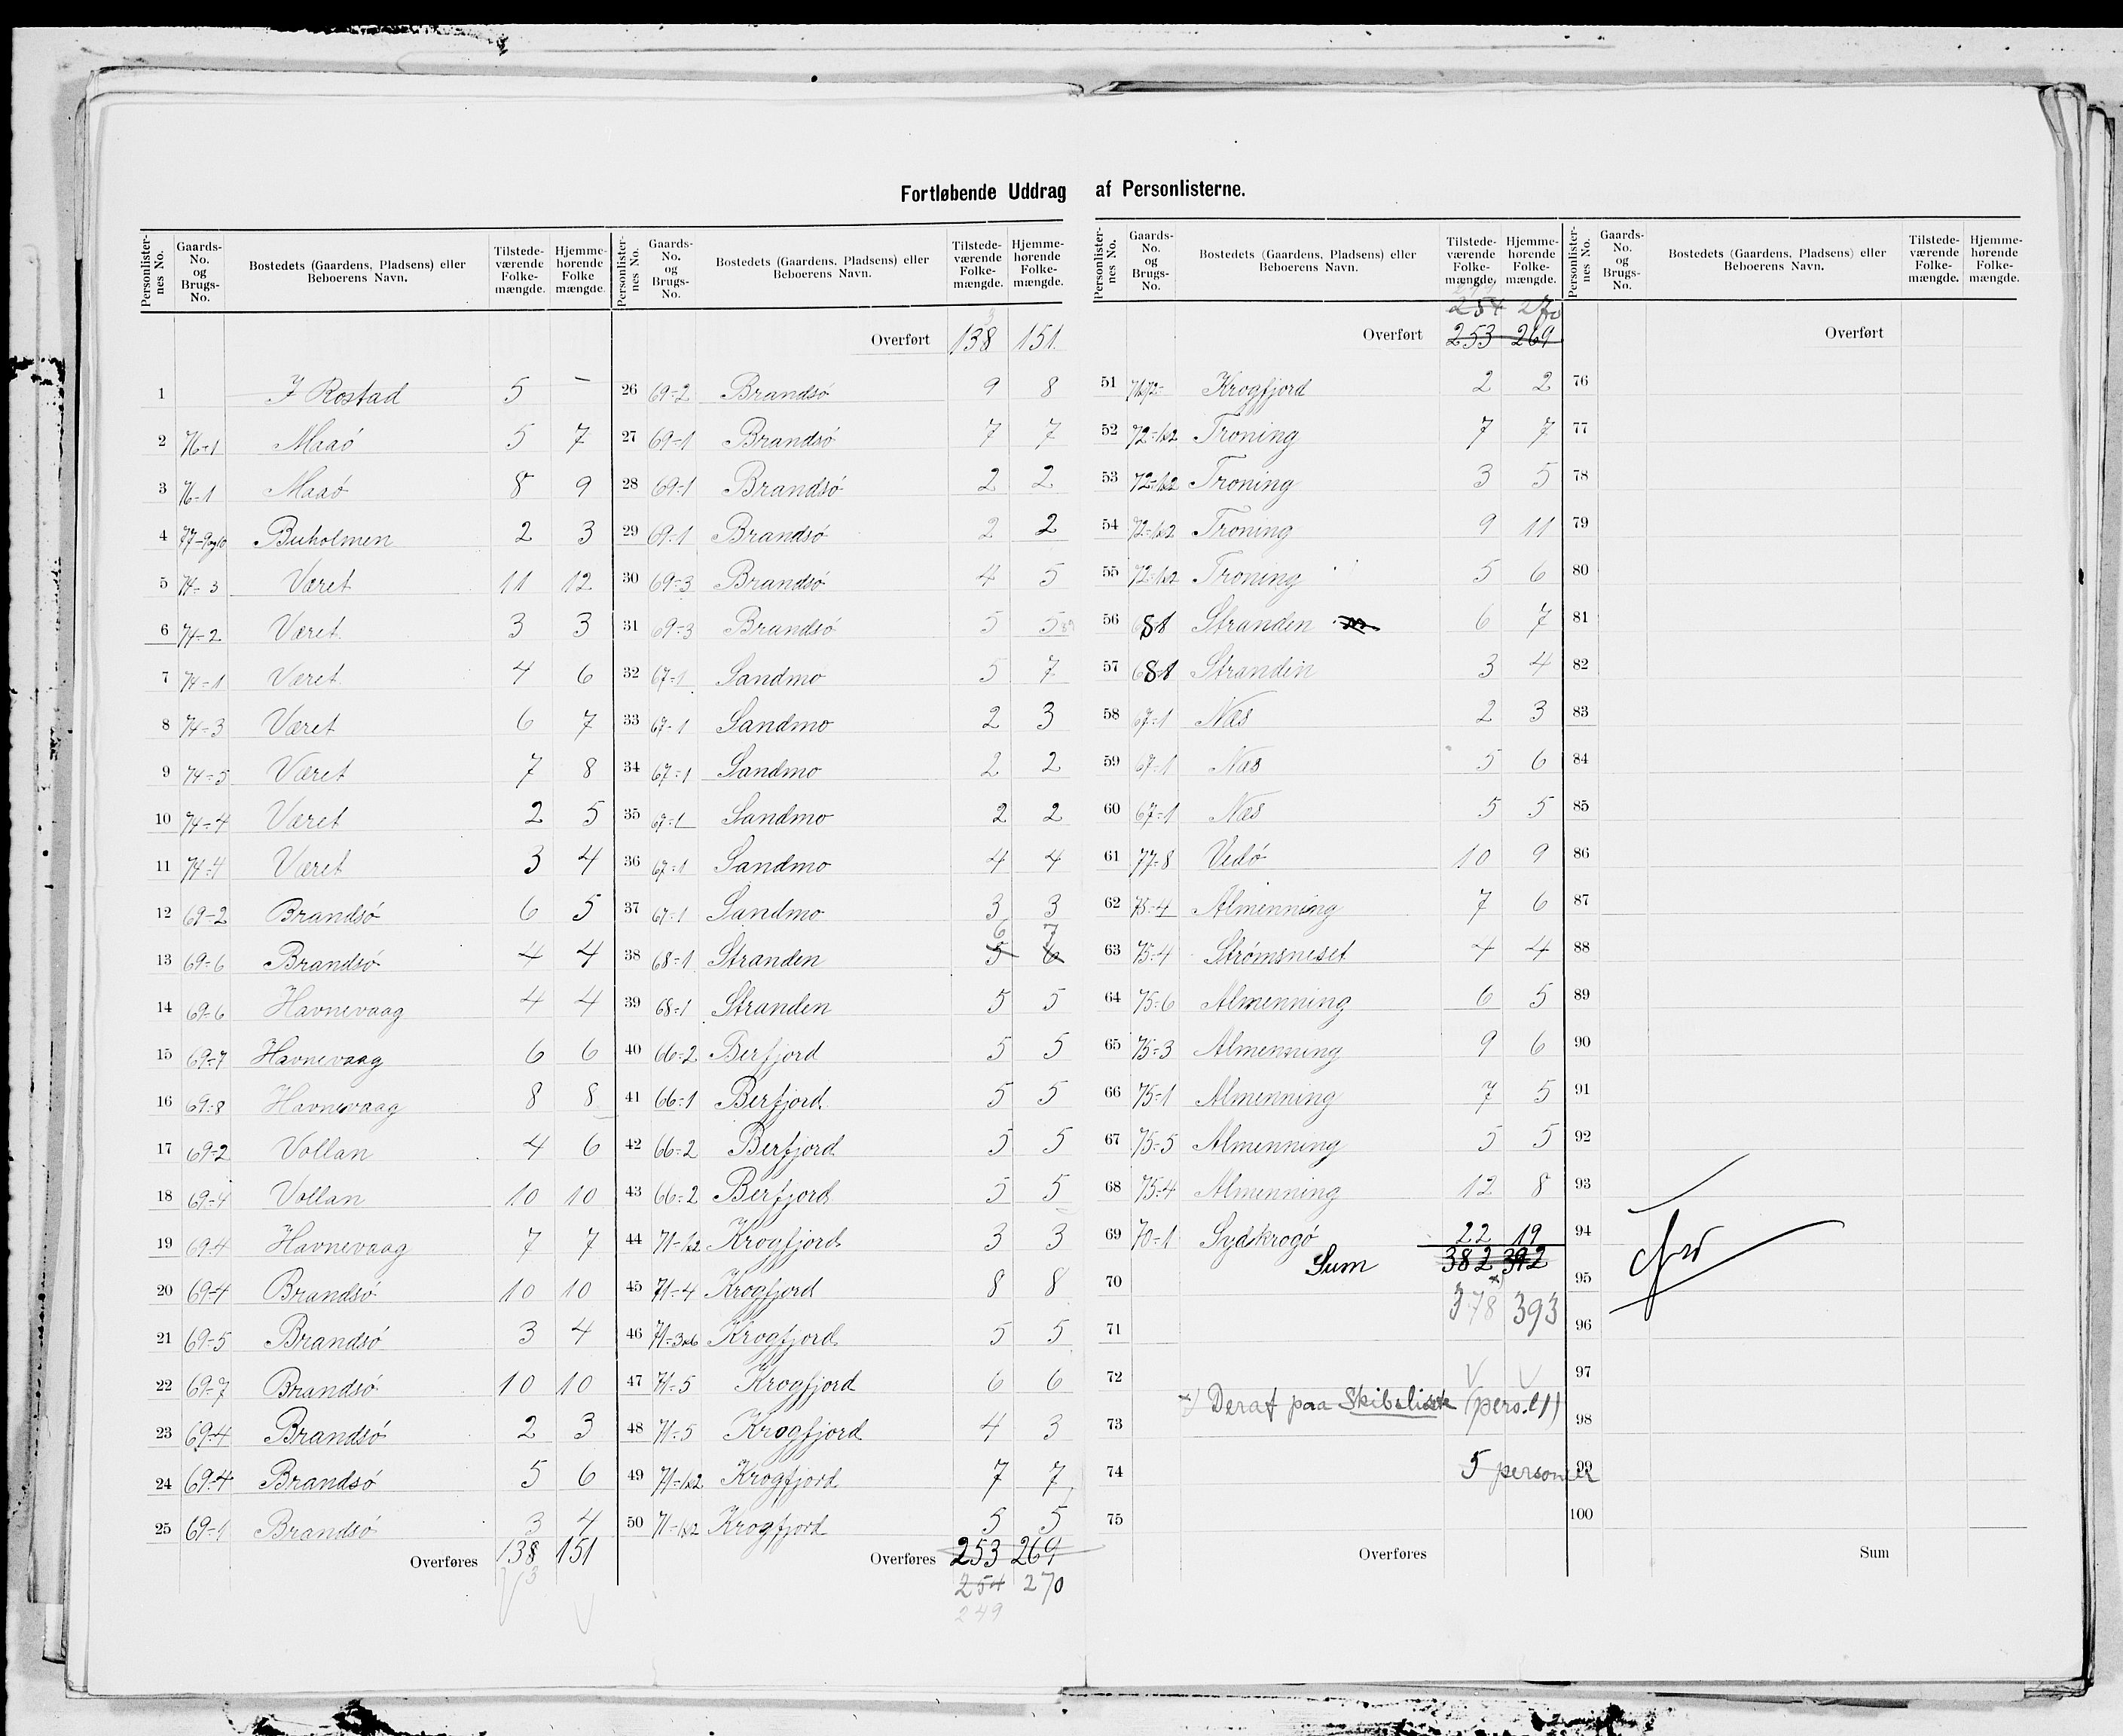 Fortløbende Uddrag af Personlisterne.
Personlister-nes No. Gaards-No. og Brugs-No. Bostedets (Gaardens, Pladsens) eller Beboerens Navn. Tilstede-værende Folke-mængde. Hjemme-hørende Folke mængde.
1 J Rostad 5 -
2 76-1 Maaö 5 7
3 76-1 Maaö 8 9
4 77-9og10 Buholmen 2 3
5 74-3 Været 11 12
6 74-2 Været 3 3
7 74-1 Været 4 6
8 74-3 Været 6 7
9 74-5 Været 7 8
10 74-4 Været 2 5
11 74-4 Været 3 4
12 69-2 Brandsö 6 5
13 69-6 Brandsö 4 4
14 69-6 Havnevaag 4 4
15 69-7 Havnevaag 6 6
16 69-8 Havnevaag 8 8
17 69-2 Vollan 4 6
18 69-4 Vollan 10 10
19 69-4 Havnevaag 7 7
20 69-4 Brandsö 10 10
21 69-5 Brandsö 3 4
22 69-7 Brandsö 10 10
23 69-4 Brandsö 2 3
24 69-4 Brandsö 5 6
25 69-1 Brandsö 3 4
Overføres 138 151
3
Personlister-nes No. Gaards-No. og Brugs-No. Bostedets (Gaardens, Pladsens) eller Beboerens Navn. Tilstede-værende Folke-mængde. Hjemme-hørende Folke-mængde.
3
Overført 138 151
26 69-2 Brandsö 9 8
27 69-1 Brandsö 7 7
28 69-1 Brandsö 2 2
29 69-1 Brandsö 2 2
30 69-3 Brandsö 4 5
31 69-3 Brandsö 5 5
32 67-1 Sandmo 5 7
33 67-1 Sandmo 2 3
34 67-1 Sandmo 2 2
35 67-1 Sandmo 2 2
36 67-1 Sandmo 4 4
37 67-1 Sandmo 3 3
6 7
38 68-1 Stranden 5 6
39 68-1 Stranden 5 5
40 66-2 Berfjord 5 5
41 66-1 Berfjord 5 5
42 66-2 Berfjord 5 5
43 66-2 Berfjord 5 5
44 71-1&2 Krogfjord 3 3
45 71-4 Krogfjord 8 8
46 71-3&6 Krogfjord 5 5
47 71-5 Krogfjord 6 6
48 71-5 Krogfjord 4 3
49 71-1&2 Krogfjord 7 7
50 71-1&2 Krogfjord 5 5
Overføres 253 269
254 270
249
Personlister-nes No. Gaards-No. og Brugs-No. Bostedets (Gaardens, Pladsens) eller Beboerens Navn. Tilstede-værende Folke-mængde. Hjemme-hørende Folke-mængde.
249
254 270
Overført 253 269
51 Krogfjord 2 2
52 72-1&2 Troning 7 7
53 72-1&2 Troning 3 5
54 72-1&2 Troning 9 11
55 72-1&2 Troning 5 6
56 68-1 Stranden 6 7
57 68-1 Stranden 3 4
58 67-1 Næs 2 3
59 67-1 Næs 5 6
60 67-1 Næs 5 5
61 77-8 Vedö 10 9
62 75-4 Almenning 7 6
63 75-4 Strømsneset 4 4
64 75-6 Almenning 6 5
65 75-3 Almenning 9 6
66 75-1 Almenning 7 5
67 75-5 Almenning 5 5
68 75-4 Almenning 12 8
69 70-1 Sydkrogö 22 19
Sum 382 392
70
x) 378 393
71
72
x) Deraf paa Skibsliste (pers.l 1)
73
74 5 personer
75
Overføres
Personlister-nes No. Gaards-No. og Brugs-No. Bostedets (Gaardens, Pladsens) eller Beboerens Navn. Tilstede-værende Folke-mængde. Hjemme-hørende Folke-mængde.
Overført
76
77
78
79
80
81
82
83
84
85
86
87
88
89
90
91
92
93
94
95
96
97
98
99
100
Sum